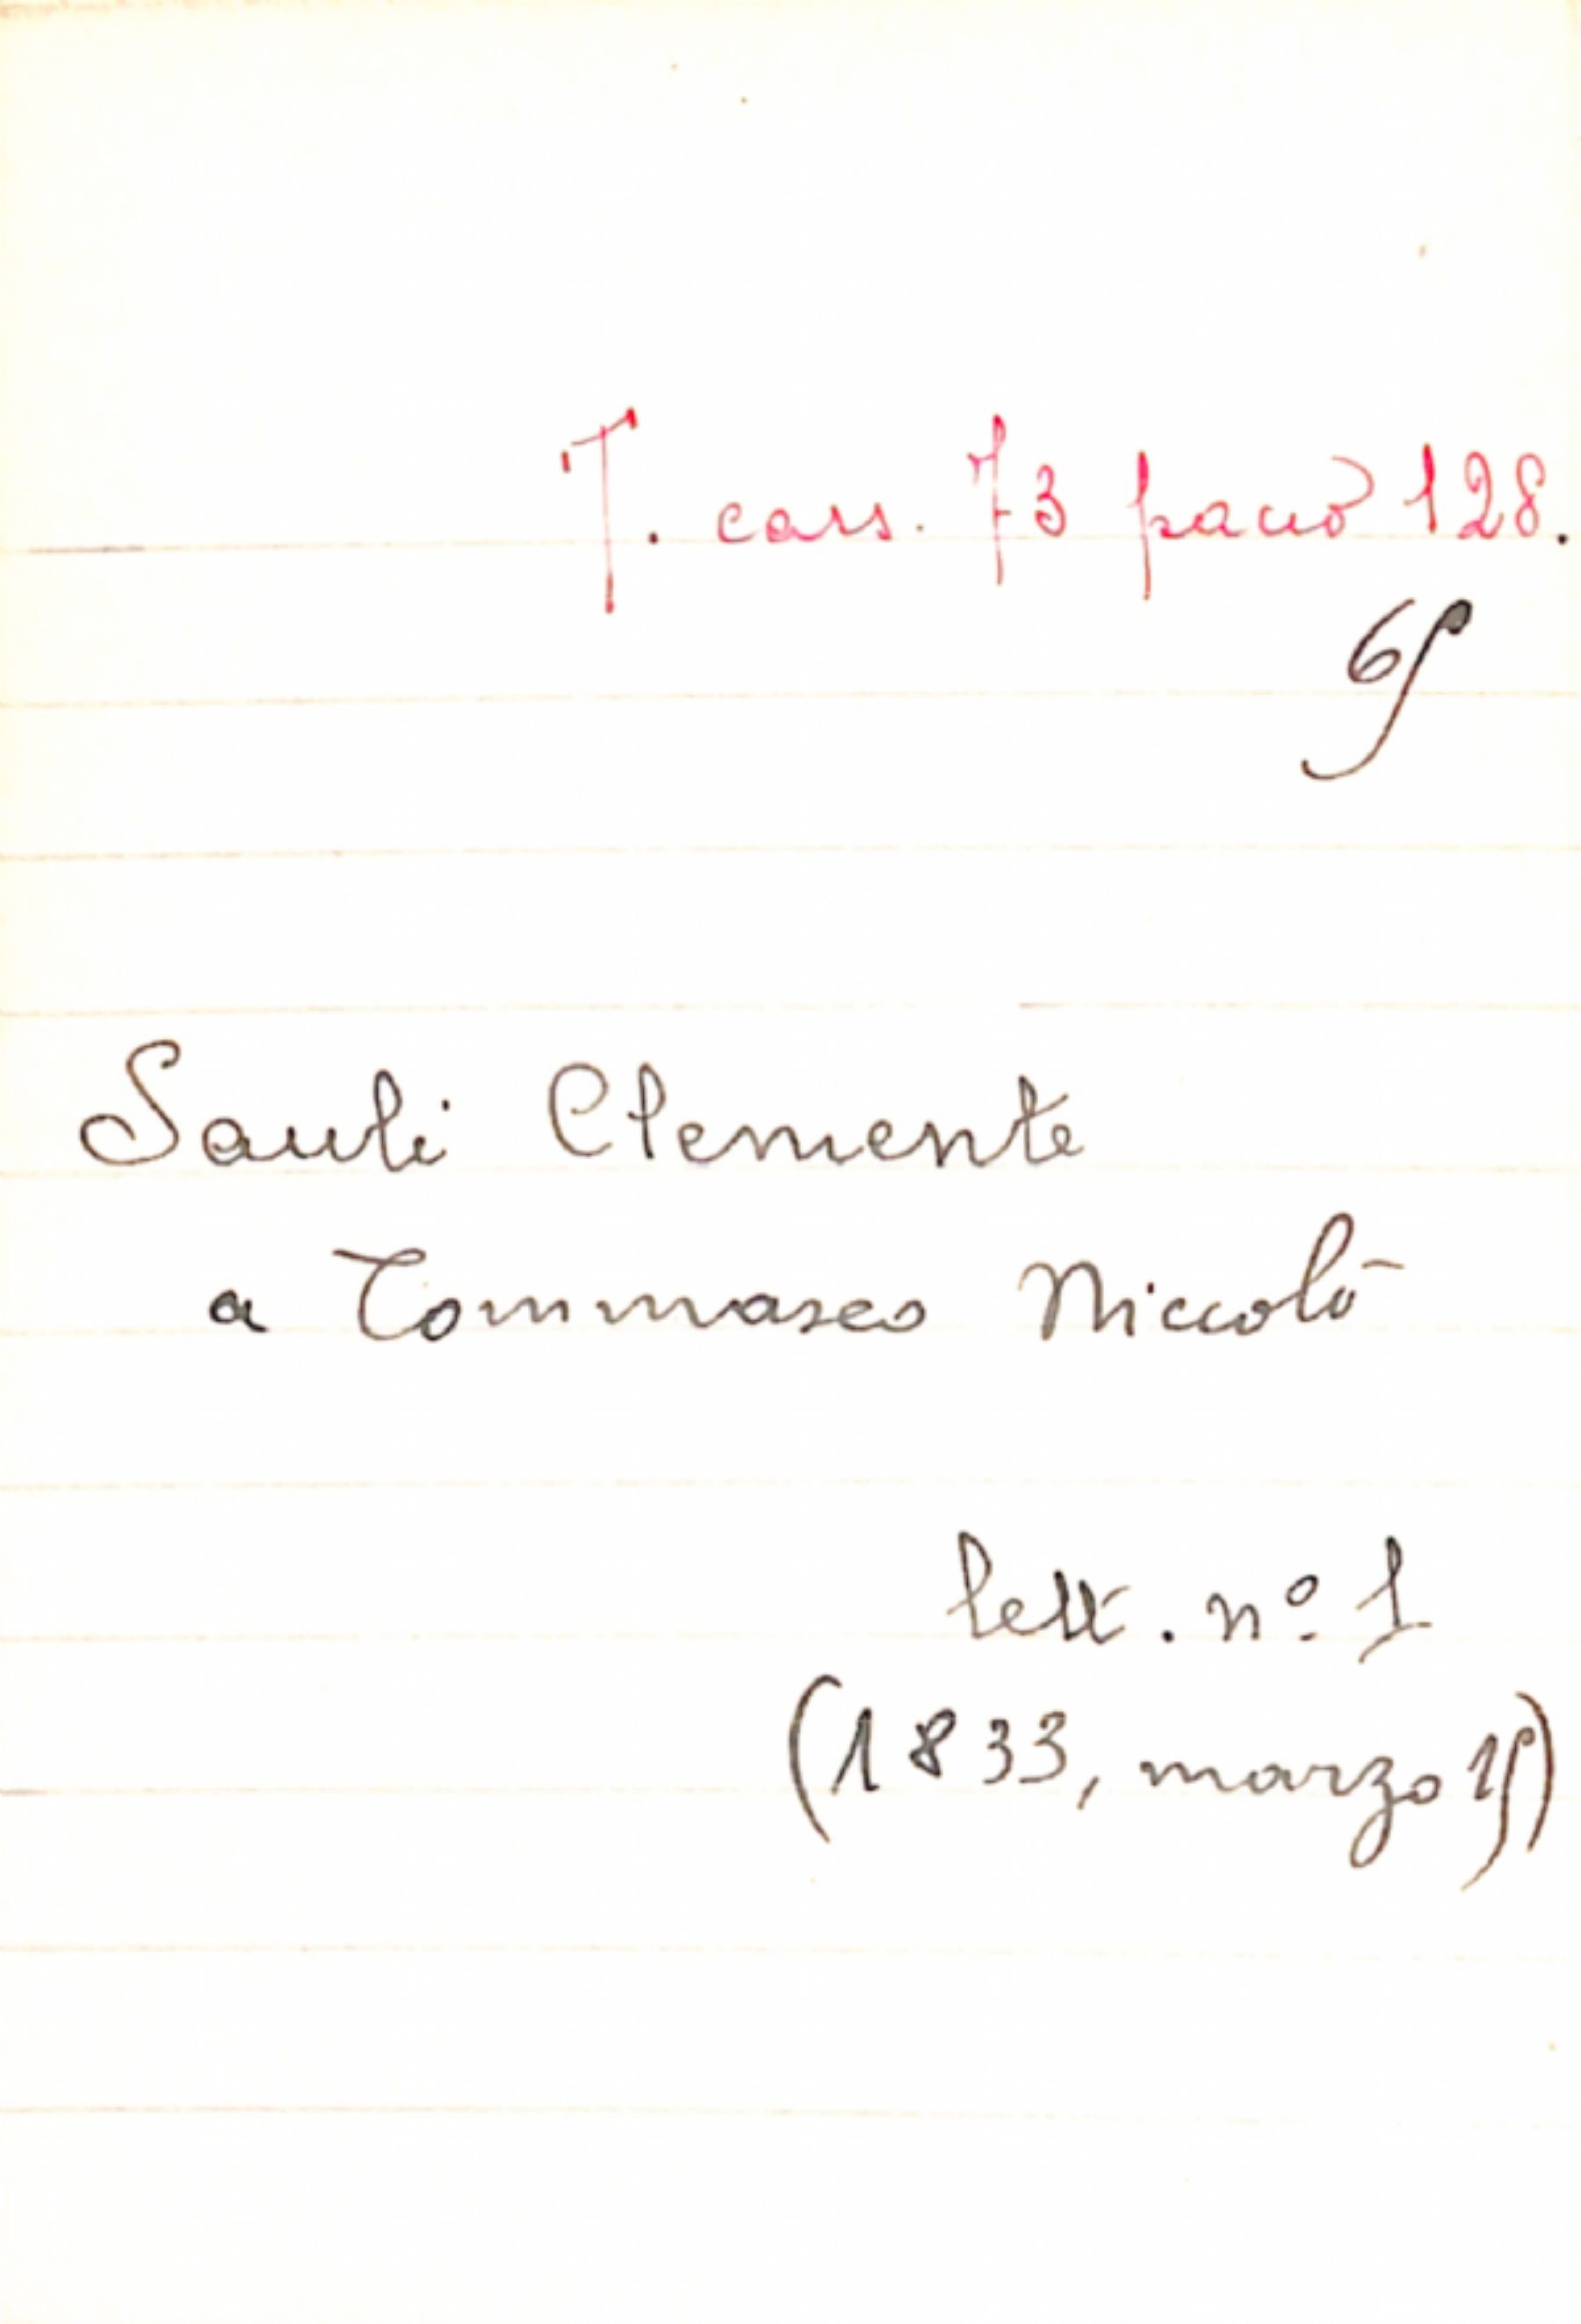 T. cass. 73 pacco 128.
65
Sauli Clemente
a Tommaseo Niccolò
lett. nº 1
(1833, marzo 15)